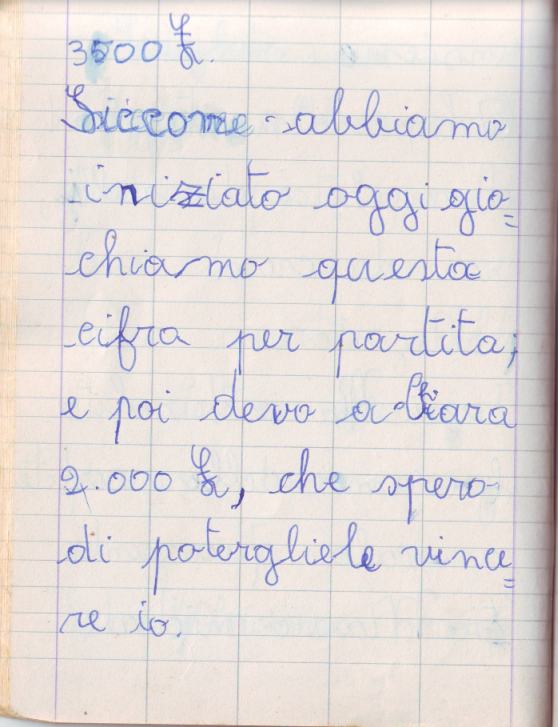 3500 £.
Siccome abbiamo
iniziato oggi gio=
chiamo questa
cifra per partita;
e poi devo a Chiara
2.000 £, che spero
di potergliele vince=
re io.